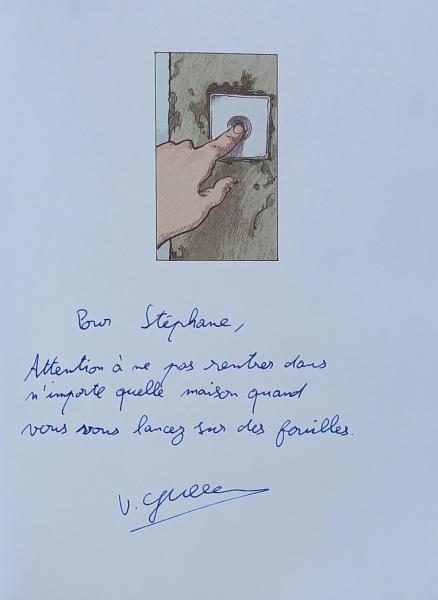 Pour Stéphane,
Attention à ne pas rentrer dans
n'importe quelle maison quand
vous vous lancez sur des fouilles.
V.